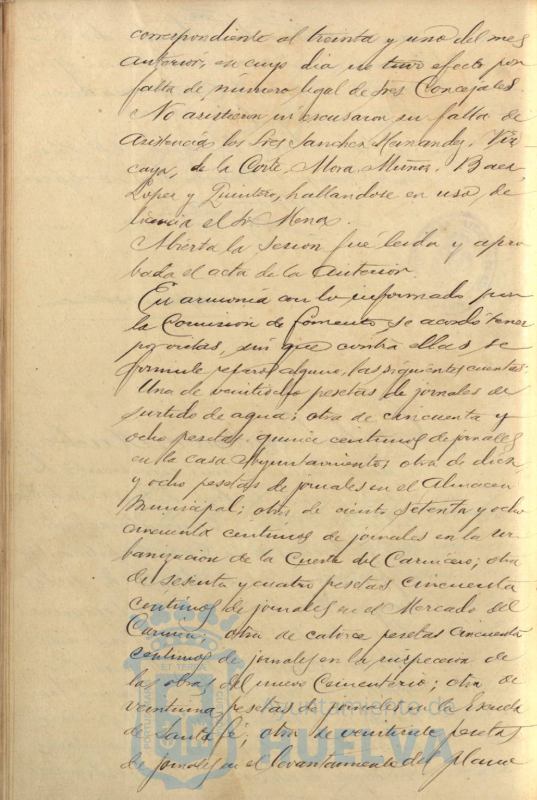 correspondiente al treinta y uno del mes
anterior, en cuyo dia no tuvo efecto por
falta de número legal de Sres Concejales.
No asistieron ni escusaron su falta de
asistencia los Sres Sanchez Hernandez, Viz
caya, de la Corte, Mora, Muñoz, Baez,
Lopez y Quintero, hallandose en uso de
licencia el Sr Mena.
Abierta la sesion fué leida y apro
bada el acta de la anterior.
En armonia con lo informado por
la Comision de fomento se acordó tener
por vistas, sin que contra ellas se
formule reparo alguno, las siguientes cuentas:
Una de veintiocho pesetas de jornales de
surtido de agua; otra de cincuenta y
ocho pesetas quince centimos de jornales
en la casa Ayuntamiento; otra de diez
y ocho pesetas de jornales en el Almacen
Municipal; otra de ciento setenta y ocho
cincuenta centimos de jornales en la ur
banizacion de la Cuesta del Carnicero; otra
de sesenta y cuatro pesetas cincuenta
centimos de jornales en el Mercado del
Carmen; otra de catorce pesetas cincuenta
centimos de jornales en la inspeccion de
las obras del nuevo Cementerio; otra de
veintiuna pesetas de jornales a la Escuela
de Santa Fé; otra de veintisiete pesetas
de jornales en el levantamiento del plano
Ayuntamiento de
HUELVA